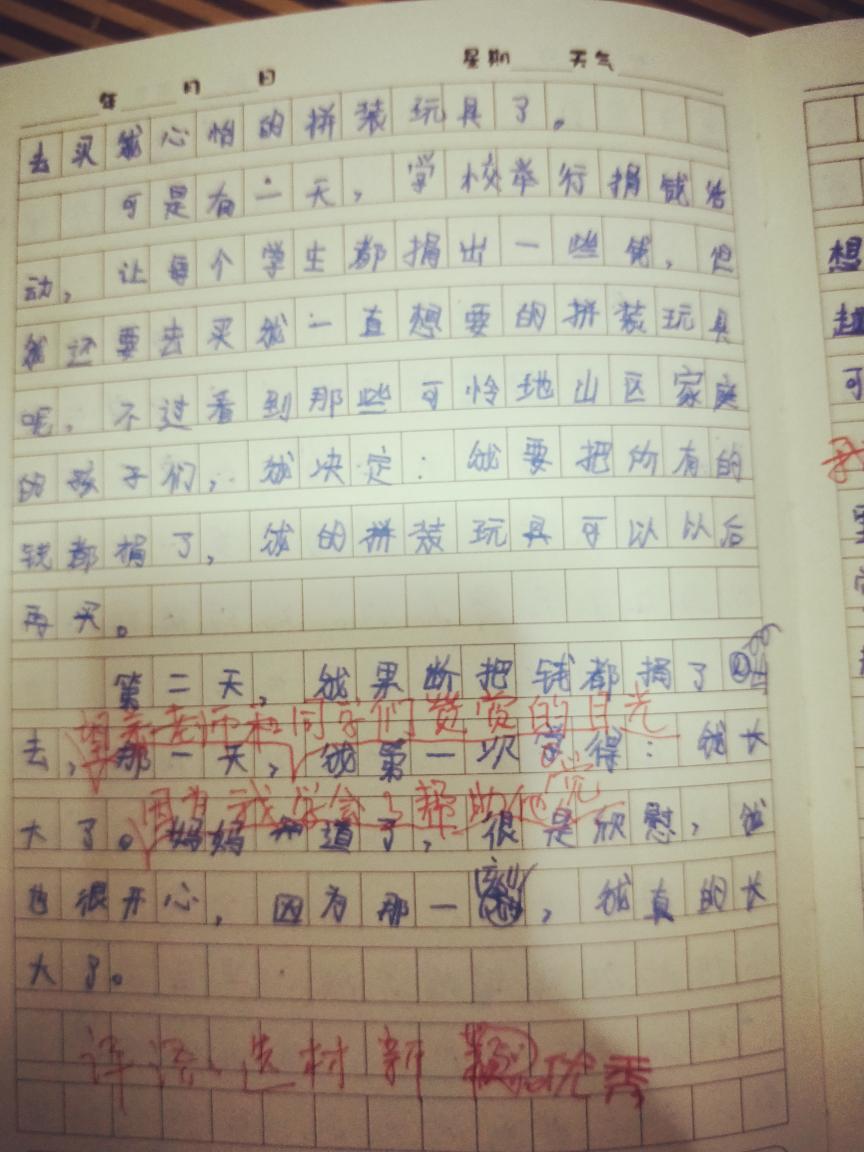 年 月 日 星期 天气
去买我心怡的拼装玩具了。
可是有一天，学校举行捐钱活
动，让每个学生都捐出一些钱，但
我还要去买我一直想要的拼装玩具
呢，不过看到那些可怜地山区家庭
的孩子们，我决定：我要把所有的
钱都捐了，我的拼装玩具可以以后
再买。
第二天，我果断把钱都捐了
望着老师和同学们赞赏的目光
去，那一天，我第一次学得：我长
觉
因为我学会了帮助他
大了。妈妈知道了，很是欣慰，我
也很开心，因为那一刻，我真的长
大了。
评语：选材新颖。优秀
想
越
可
我